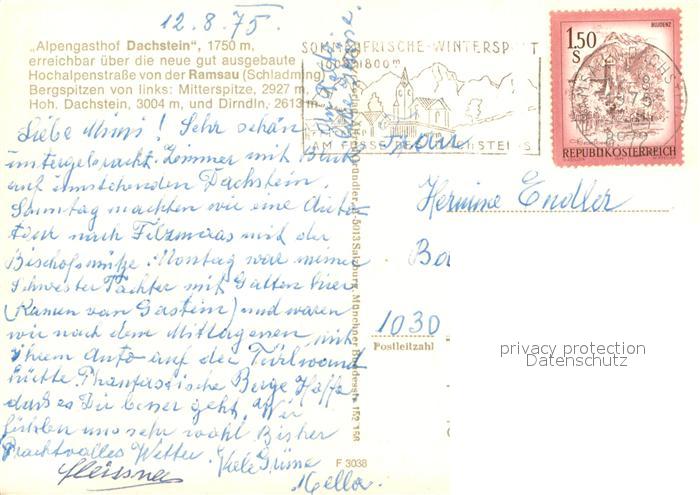 12.8.75.
„Alpengasthof Dachstein“, 1750 m,
erreichbar über die neue gut ausgebaute
Hochalpenstraße von der Ramsau (Schladming)
Bergspitzen von links: Mitterspitze, 2927 m,
Hoh. Dachstein, 3004 m, und Dirndln, 2613 m
Liebe Mimi! Sehr schön
untergebracht. Zimmer mit Blick
auf Dachstein.
Sonntag machten wir eine Auto-
tour nach Filzmoos mit der
Bischofsmütze. Montag war meine
Schwester Tochter mit Gatten hier
(Kamen von Gastein) und waren
wir nach dem Mittagessen mit
ihrem Auto auf der Türlwand
hütte. Phantastische Berge. Hoffe
daß es Dir besser geht. Wir
fühlen uns sehr wohl. Bisher
Prachtvolles Wetter.
Viele Grüsse
Mella.
SOMMERFRISCHE-WINTERSPORT
1800m
AM FUSSE DES DACHSTEINS
BLUDENZ
1.50
S
REPUBLIK ÖSTERREICH
8972
Frau
Hermine Endler
1030
Postleitzahl
5013 Salzburg, Münchner Bundesstr. 152-156
F 3038
privacy protection
Datenschutz